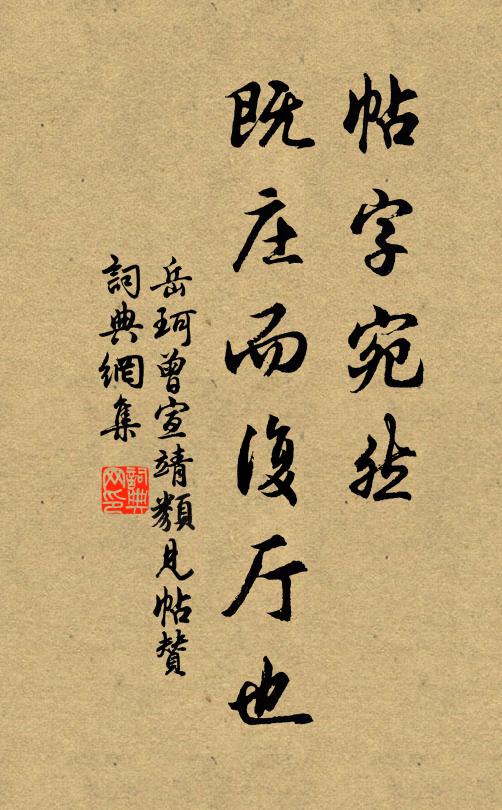 帖字宛然
既庄而復厅也
岳珂曾宣靖類見帖赞
詞典網集
詞典网印